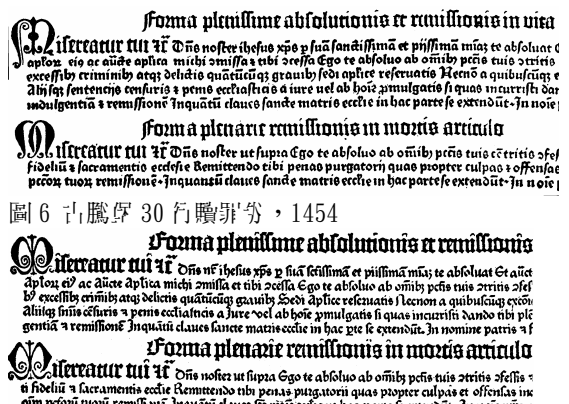 Forma plenissime absolutionis et remissionis in vita
Misereatur tui ⁊c̄ Dn̄s noster ihesus xp̄s ꝑ suā sanctissimā et pijssimā mīaꝫ te absoluat
aplōꝝ eiꝰ ac auc̄te aplica michi ↄmissa ⁊ tibi ↄcessa Ego te absoluo ab om̄ibꝫ pcc̄is tuis ↄtritis
excessibꝫ criminibꝫ atqꝫ delictis quātūcūqꝫ grauibꝫ sedi aplice reseruatis Necnō a quibuscūqꝫ
Alijsqꝫ sentencijs censuris ⁊ penis ecclīasticis a iure uel ab hoīe ꝓmulgatis si quas incurristi dan
indulgentiā ⁊ remissionē Inquātū claues sancte matris ecclīe in hac parte se extendūt In noīe
Forma plenarie remissionis in mortis articulo
Misereatur tui ⁊c̄ Dn̄s noster ut supra Ego te absoluo ab om̄ibꝫ pcc̄is tuis cōtritis ↄfes
fideliū ⁊ sacramentis ecclesie Remittendo tibi penas purgatorij quas propter culpas et offensas
pccōꝝ tuoꝝ remissionē Inquantū claues sancte matris ecclīe in hac parte se extendūt In noīe
圖 6 古騰堡 30 行贖罪券，1454
Forma plenissime absolutionis et remissionis
Misereatur tui ⁊c̄ Dn̄s nr̄ ihesus xp̄s ꝑ suā sctīssimā et piissimā mīaꝫ te absoluat Et auct
Aplōꝝ eiꝰ ac Aucte Aplica michi ↄmissa et tibi ↄcessa Ego te absoluo ab om̄ibꝫ pcc̄is tuis ↄtritis
bꝫ excessibꝫ crimībꝫ atqꝫ delictis quātūcūqꝫ grauibꝫ Sedi Aplice reseruatis Necnon a quibuscūqꝫ
Aliisqꝫ sniīs cēsuris ⁊ penis ecclīasticis a Jure vel ab hoīe ꝓmulgatis si quas incurristi dando tibi
gentiā ⁊ remissionē Inquātū claues sancte matris ecclīe in hac ꝑte se extendūt. In nomine patris ⁊ f
Forma plenarie remissionis in mortis articulo
Misereatur tui ⁊c̄ Dn̄s noster ut supra Ego te absoluo ab om̄ibꝫ pcc̄is tuis ↄtritis ↄfessis
ti fideliū ⁊ sacramentis ecclīe Remittendo tibi penas purgatorij quas propter culpas et offensas